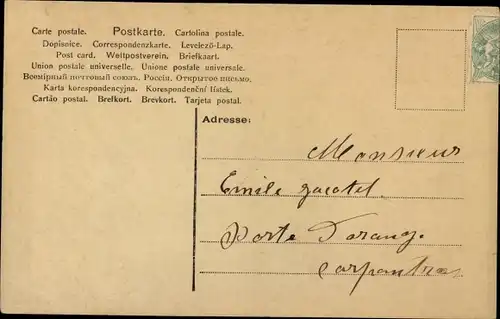 Carte postale. Postkarte. Cartolina postale.
Dopisnice. Correspondenzkarte. Levelező-Lap.
Post card. Weltpostverein. Briefkaart.
Union postale universelle. Unione postale universale.
Всемірный почтовый союзъ. Россія. Открытое письмо.
Karta korespondencyjna. Korespondenční lístek.
Cartão postal. Brefkort. Brevkort. Tarjeta postal.
Adresse:
Monsieur
Emile
Porte D'orange
Carpentras